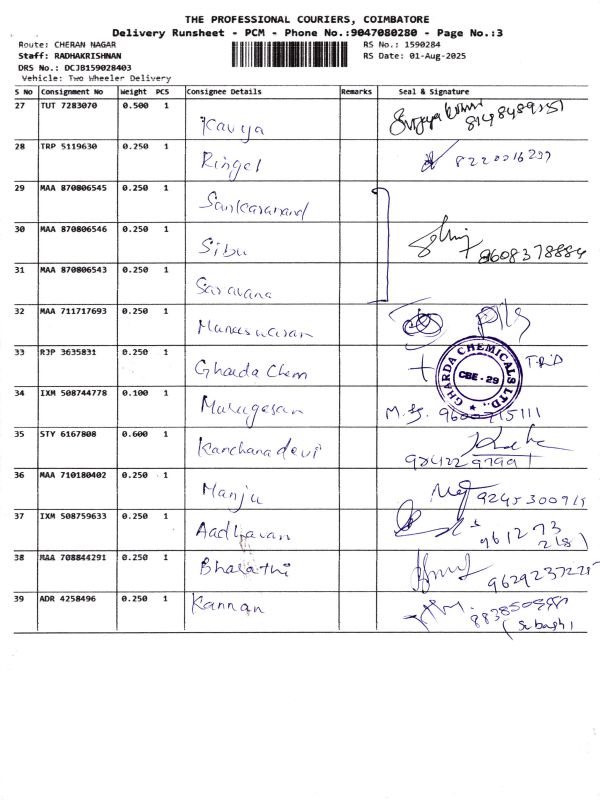 THE PROFESSIONAL COURIERS, COIMBATORE
Delivery Runsheet - PCM - Phone No.:9047080280 - Page No.:3
Route: CHERAN NAGAR RS No.: 1590284
Staff: RADHAKRISHNAN RS Date: 01-Aug-2025
DRS No.: DCJB159028403
Vehicle: Two Wheeler Delivery
S No Consignment No Weight PCS Consignee Details Remarks Seal & Signature
27 TUT 7283070 0.500 1 Kavya
28 TRP 5119630 0.250 1 Ringel
29 MAA 870806545 0.250 1 Sankaranand
30 MAA 870806546 0.250 1 Sibu 9608378884
31 MAA 870806543 0.250 1 Saravana
32 MAA 711717693 0.250 1 Muneeswaran
33 RJP 3635831 0.250 1 Gharda Chem GHARDA CHEMICALS LTD., CBE - 29
34 IXM 508744778 0.100 1 Murugesan
35 STY 6167808 0.600 1 Kanchanadevi
36 MAA 710180402 0.250 1 Manju
37 IXM 508759633 0.250 1 Aadhavan
38 MAA 708844291 0.250 1 Bharathi
39 ADR 4258496 0.250 1 Kannan